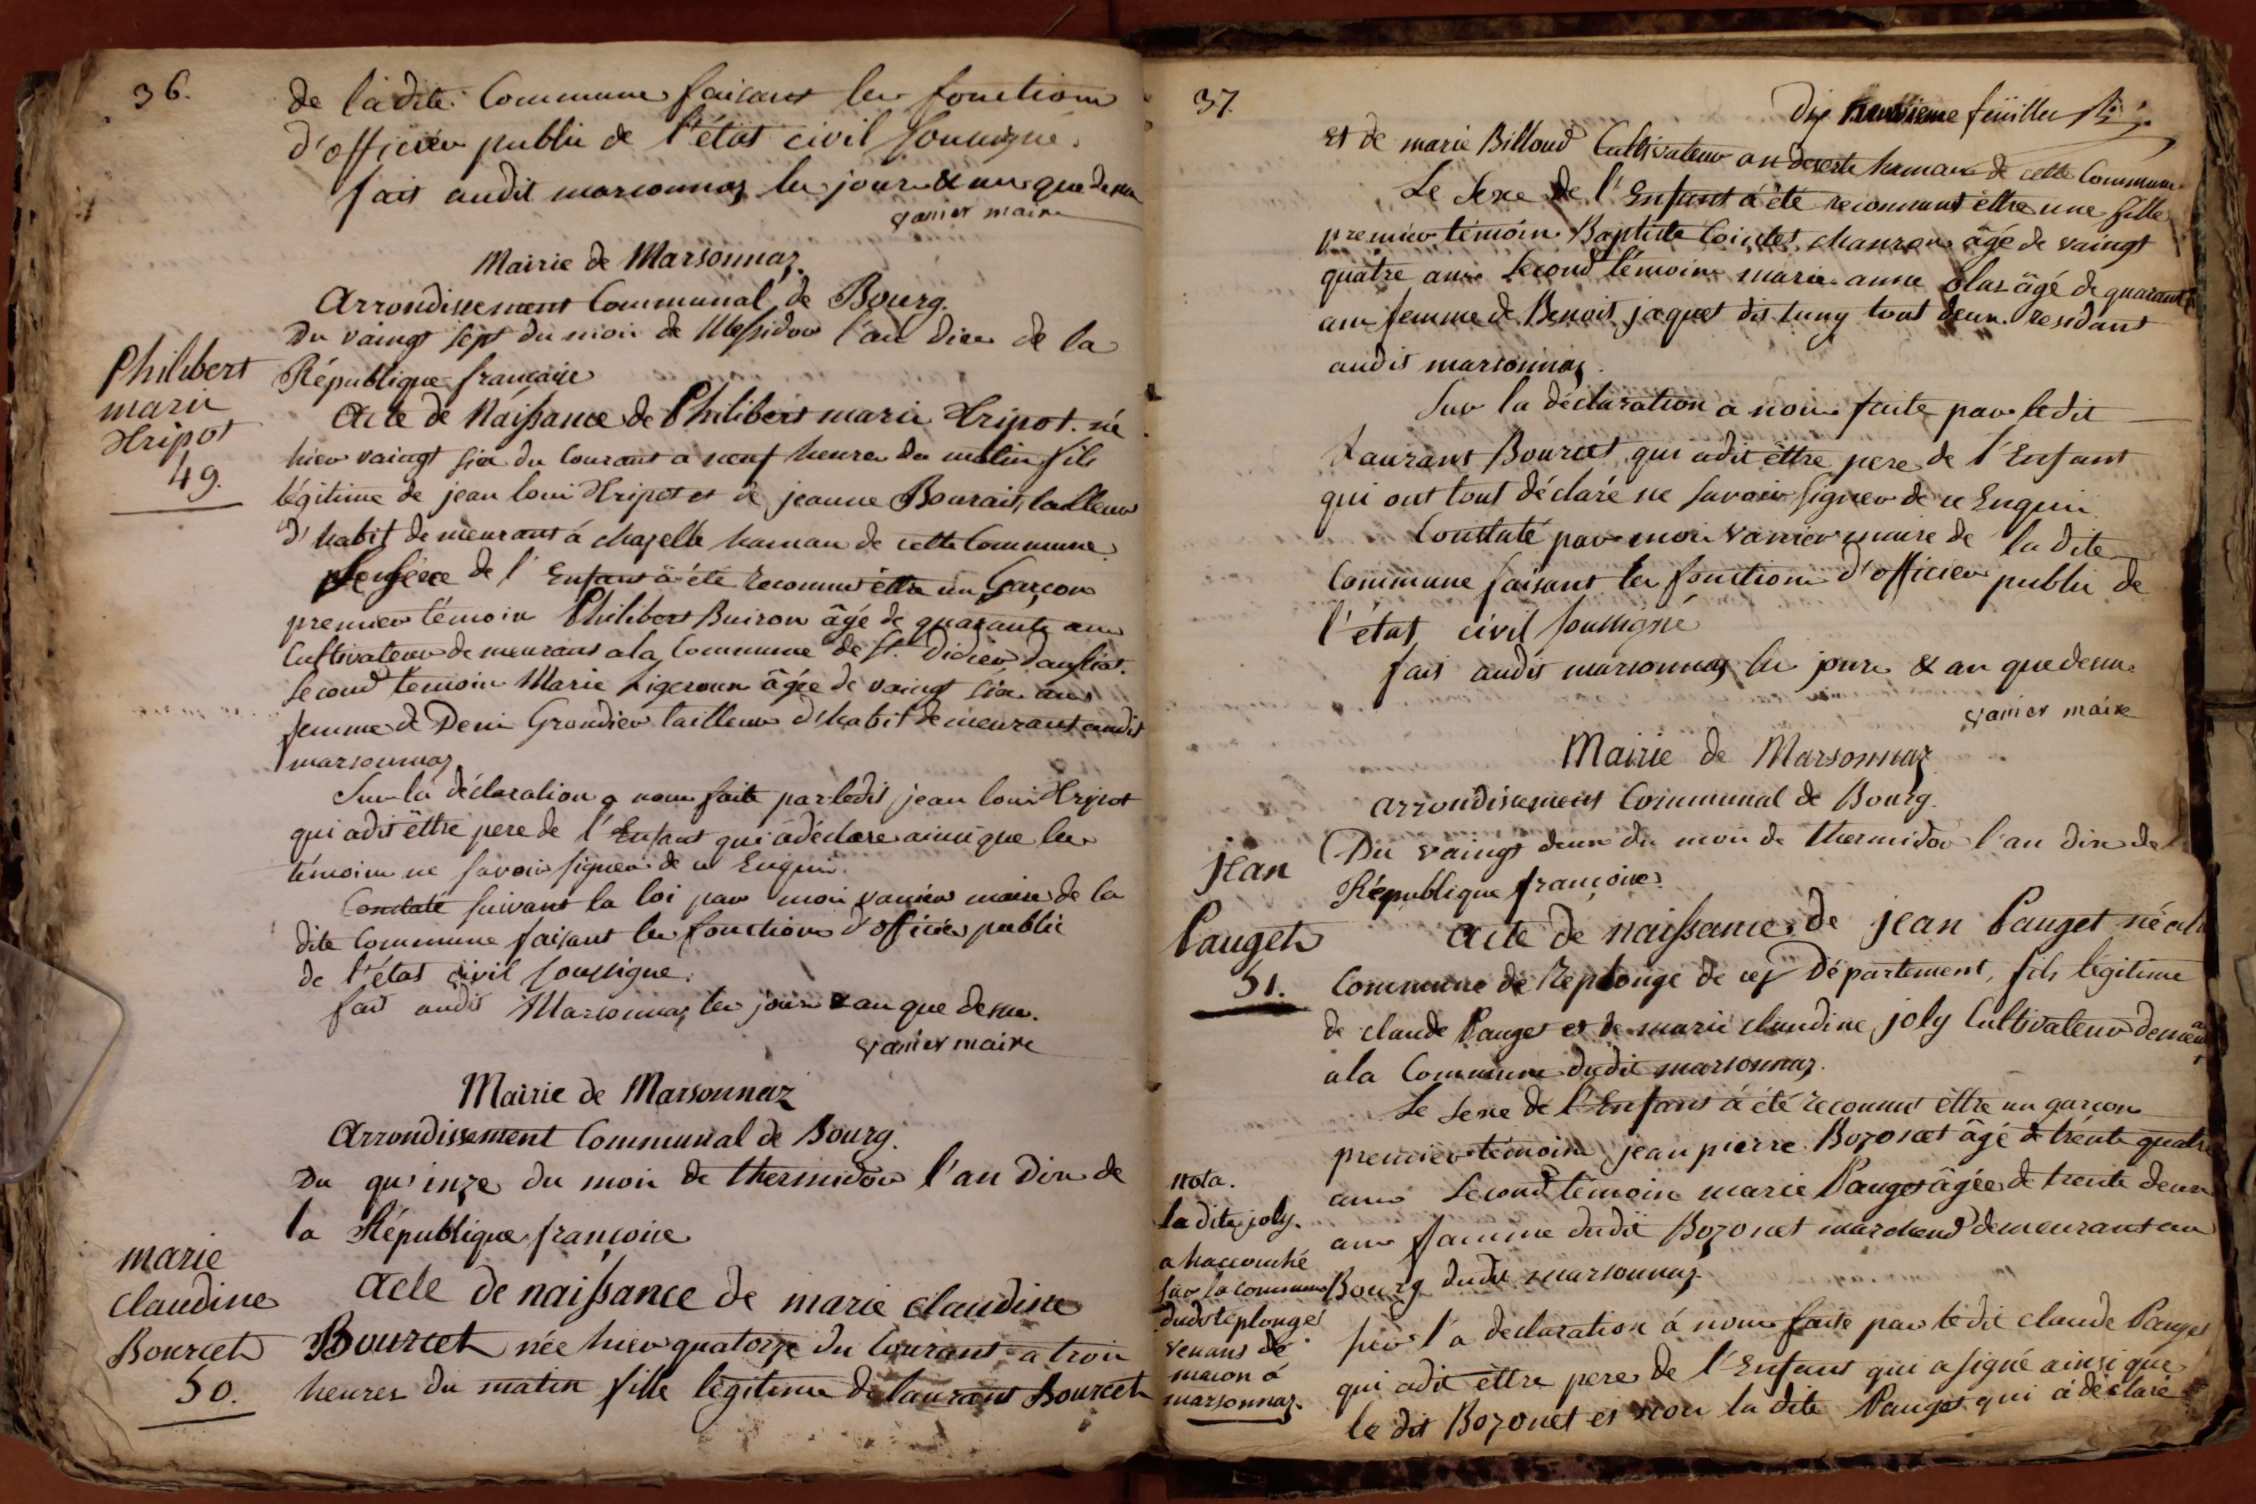 36.
de ladite Commune faisant les fonctions
d'officier public de l'état civil soussigné.
fait audit marsonnaz les jour & an que dessu
vanier maire
Mairie de Marsonnaz.
Arrondissement Communal de Bourg.
Du vaingt sept du mois de Messidor l'an dix de la
République françoise
Philibert
marie
Tripot
49.
Acte de Naissance de Philibert marie Tripot. né
hier vaingt six du Courant a neuf heures du matin fils
légitime de jean loui Tripot et de jeanne Bourait, tailleur
d'habit demeurant á chapelle hamau de cette Commune
Le sexe de l'Enfant â été reconnut être un Garcon
premier témoin Philibert Buiron âgé de quarante ans
Cultivateur demeurant a la Commune de St. Didier
second témoin Marie âgée de vaingt six ans
femme de Deni Grondier tailleur d'habit demeurant audit
marsonnaz
Sur la déclaration a nous faite par ledit jean loui Tripot
qui adit êttre pere de l'Enfant qui â déclare ainsi que les
témoins ne savoir signer de ce Enquis.
Constaté suivant la loi par moi vanier maire de la
dite Commune faisant les fonctions d'officier public
de l'état civil soussigné.
fait audit Marsonnaz les jour & an que dessu.
vanier maire
Mairie de Marsonnaz
Arrondissement Communal de Bourg.
Du quinze du moi de thermidor l'an dix de
la République françoise
marie
claudine
Bourcet
50.
Acte de naissance de marie claudine
Bourcet née hier quatorze du Courant a troi
heures du matin fille légitime de laurant Bourcet
37.
Dix feuiller
et de marie Billoud Cultivateur au hamau de cette Commune
Le sexe de l'Enfant â été reconnut êttre une fille
premier témoin Baptiste Cointet, âgé de vaingt
quatre ans second témoin marie anne âgé de quarante
ans femme de Benoit jaquet dit tout deux residant
audit marsonnaz.
Sur la déclaration a nous faite par ledit
Laurant Bourcet, qui adit êttre pere de l'Enfant
qui ont tout déclaré ne savoir signer de ce Enquis
Constaté par moi vanier maire de la dite
Commune faisant les fonctions d'officier public de
l'état civil soussigné
fait audit marsonnaz les jour & an que dessu.
vanier maire
Mairie de Marsonnaz
arrondissement Communal de Bourg.
Du vaingt deux du moi de thermidor l'an dix de
République françoise.
jean
Pauget
51.
Acte de naissance de jean Pauget né a la
Commune de Replonge de cej Département, fils légitime
de claude Pauget et de marie claudine joly Cultivateur demeurant
a la Commune dudit marsonnaz.
Le sexe de l'Enfant á été reconnut êttre un garçon
premier témoin jean pierre Bozonet âgé de trente quatre
ans second témoin marie Pauget âgée de trente deux
ans famme dudit Bozonet marchand demeurant au
Bourg dudit marsonnaz
Nota.
la dite joly.
a haccouché
sur la commune
dudit Replonge
venant de
macon á
marsonnaz.
sur l'a declaration á nous faite par le dit claude Pauget
qui adit êttre pere de l'Enfant qui a signé ainsi que
le dit Bozonet et non la dite Pauget qui á déclaré